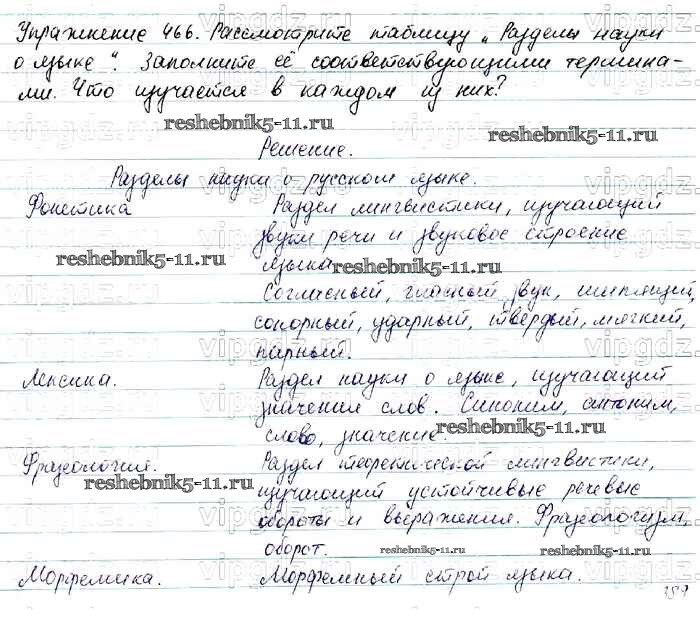 Упражнение 466. Рассмотрите таблицу „Разделы науки
о языке“. Заполните её соответствующими термина-
ми. Что изучается в каждом из них?
reshebnik5-11.ru reshebnik5-11.ru
Решение.
Разделы науки о русском языке.
Фонетика Раздел лингвистики, изучающий
звуки речи и звуковое строение
reshebnik5-11.ru языка reshebnik5-11.ru
Согласный, гласный, звук, шипящий,
сонорный, ударный, твёрдый, мягкий,
парный.
Лексика. Раздел науки о языке, изучающий
значения слов. Синоним, антоним,
слово, значение. reshebnik5-11.ru
Фразеология. Раздел теоретической лингвистики,
reshebnik5-11.ru изучающий устойчивые речевые
обороты и выражения. Фразеологизм,
оборот. reshebnik5-11.ru reshebnik5-11.ru
Морфемика. Морфемный строй языка.
vipgdz.ru